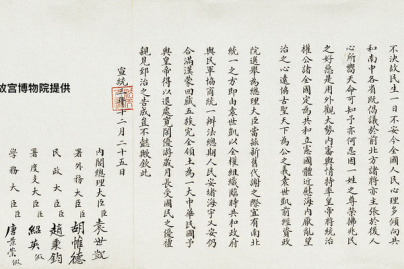 不決故民生一日不安今全國人民心理多傾向共
和南中各省既倡議於前北方諸將亦主張於後人
心所嚮天命可知予亦何忍因一姓之尊榮拂兆民
之好惡是用外觀大勢內審輿情特率皇帝將統治
權公諸全國定為共和立憲國體近慰海內厭亂望
治之心遠協古聖天下為公之義袁世凱前經資政
院選舉為總理大臣當茲新舊代謝之際宜有南北
統一之方即由袁世凱以全權組織臨時共和政府
與民軍協商統一辦法總期人民安堵海宇乂安仍
合滿漢蒙回藏五族完全領土為一大中華民國予
與皇帝得以退處寬閒優游歲月長受國民之優禮
親見郅治之告成豈不懿歟欽此
宣統三年十二月二十五日
內閣總理大臣臣袁世凱
署外務大臣臣胡惟德
民政大臣臣趙秉鈞
署度支大臣臣紹英假
學務大臣臣唐景崇假
故宫博物院提供